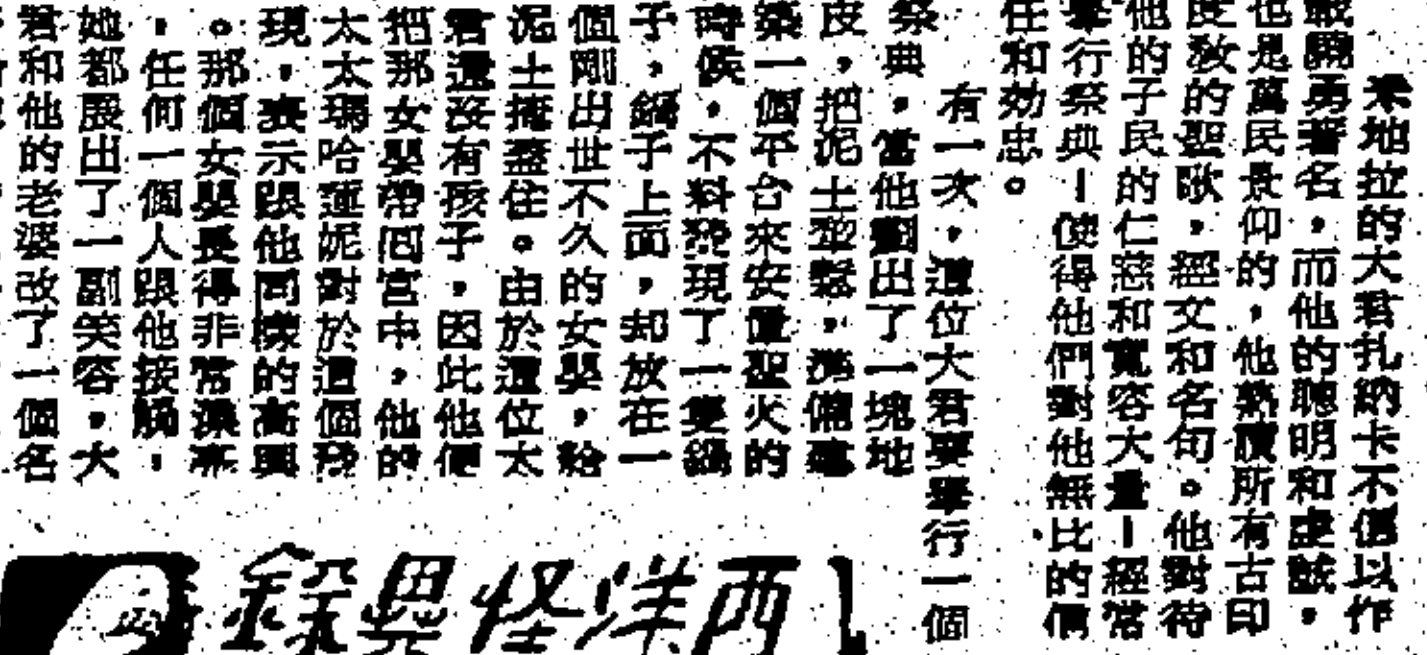 米地拉的大君扎納卡不僅以作
戰驍勇著名，而他的聰明和虔誠，
也是萬民景仰的，他熟讀所有古印
度教的聖歌，經文和名句。他對待
他的子民的仁慈和寬容大量－經常
舉行祭典－使得他們對他無比的信
任和効忠。
有一次，這位大君要舉行一個
祭典，當他劃出了一塊地
皮，把泥土犂鬆，準備建
築一個平台來安置聖火的
時候，不料發現了一隻鍋
子，鍋子上面，却放在一
個剛出世不久的女嬰，給
泥土掩蓋住。由於這位太
君還沒有孩子，因此他便
把那女嬰帶囘宮中，他的
太太瑪哈蓮妮對於這個發
現，表示跟他同樣的高興
。那個女嬰長得非常漂亮
，任何一個人跟他接觸，
她都展出了一副笑容，大
君和他的老婆改了一個名
西洋怪異錄